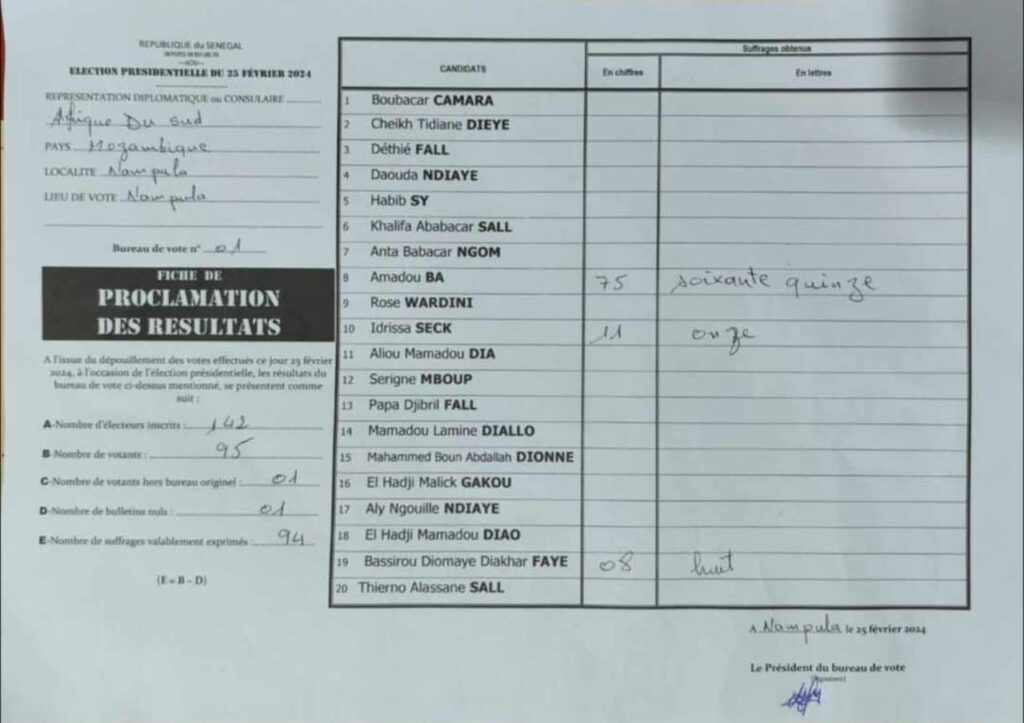 REPUBLIQUE du SENEGAL
ELECTION PRESIDENTIELLE DU 25 FÉVRIER 2024
REPRESENTATION DIPLOMATIQUE ou CONSULAIRE
Afrique Du Sud
PAYS Mozambique
LOCALITE Nampula
LIEU DE VOTE Nampula
Bureau de vote n° 01
FICHE DE
PROCLAMATION
DES RESULTATS
A l'issue du dépouillement des votes effectués ce jour 25 février
2024, à l'occasion de l'élection présidentielle, les résultats du
bureau de vote ci-dessus mentionné, se présentent comme
suit :
A-Nombre d'électeurs inscrits : 142
B-Nombre de votants : 95
C-Nombre de votants hors bureau originel : 01
D-Nombre de bulletins nuls : 01
E-Nombre de suffrages valablement exprimés : 94
(E = B – D)
CANDIDATS
Suffrages obtenus
En chiffres
En lettres
1 Boubacar CAMARA
2 Cheikh Tidiane DIEYE
3 Déthié FALL
4 Daouda NDIAYE
5 Habib SY
6 Khalifa Ababacar SALL
7 Anta Babacar NGOM
8 Amadou BA 75 soixante quinze
9 Rose WARDINI
10 Idrissa SECK 11 onze
11 Aliou Mamadou DIA
12 Serigne MBOUP
13 Papa Djibril FALL
14 Mamadou Lamine DIALLO
15 Mahammed Boun Abdallah DIONNE
16 El Hadji Malick GAKOU
17 Aly Ngouille NDIAYE
18 El Hadji Mamadou DIAO
19 Bassirou Diomaye Diakhar FAYE 08 huit
20 Thierno Alassane SALL
A Nampula le 25 février 2024
Le Président du bureau de vote
(Signature)